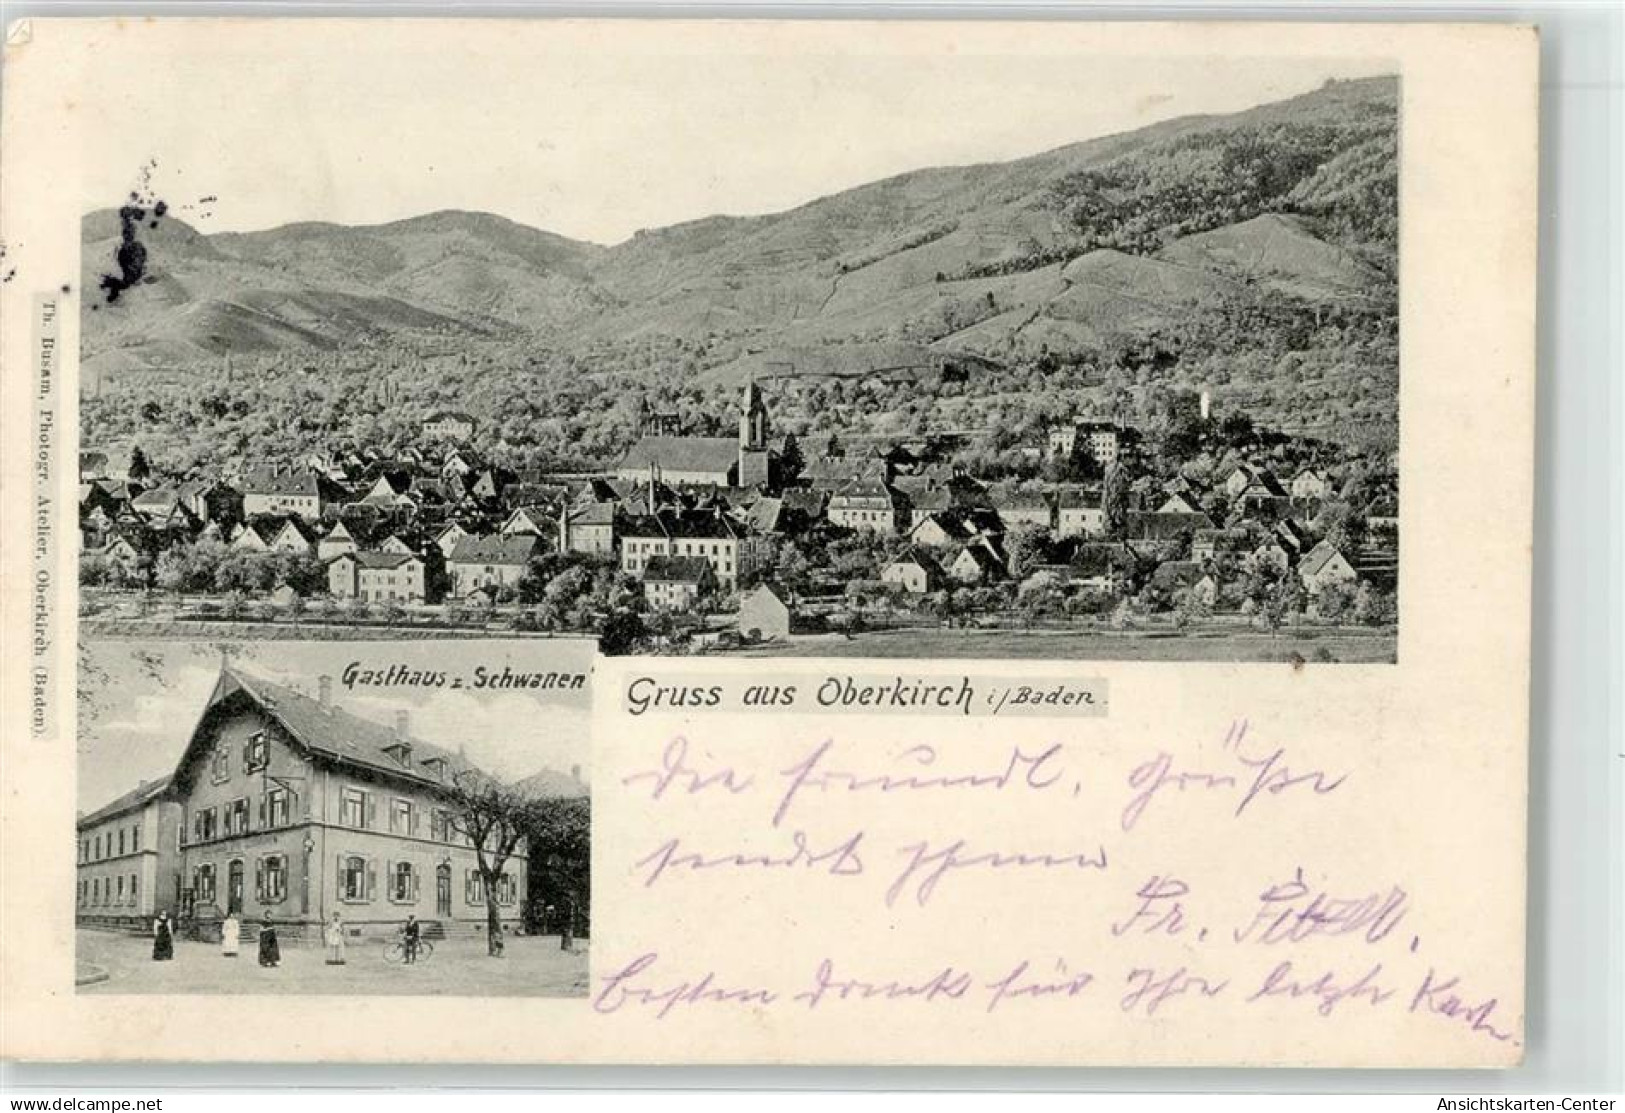 Th. Busam, Photogr. Atelier, Oberkirch (Baden).
Gasthaus z. „Schwanen“
Gruss aus Oberkirch i/Baden.
Die freundl. Grüße
sendet Ihnen
Fr.
Besten Dank für Ihre letzte Karte.
delcampe.net
Ansichtskarten-Center